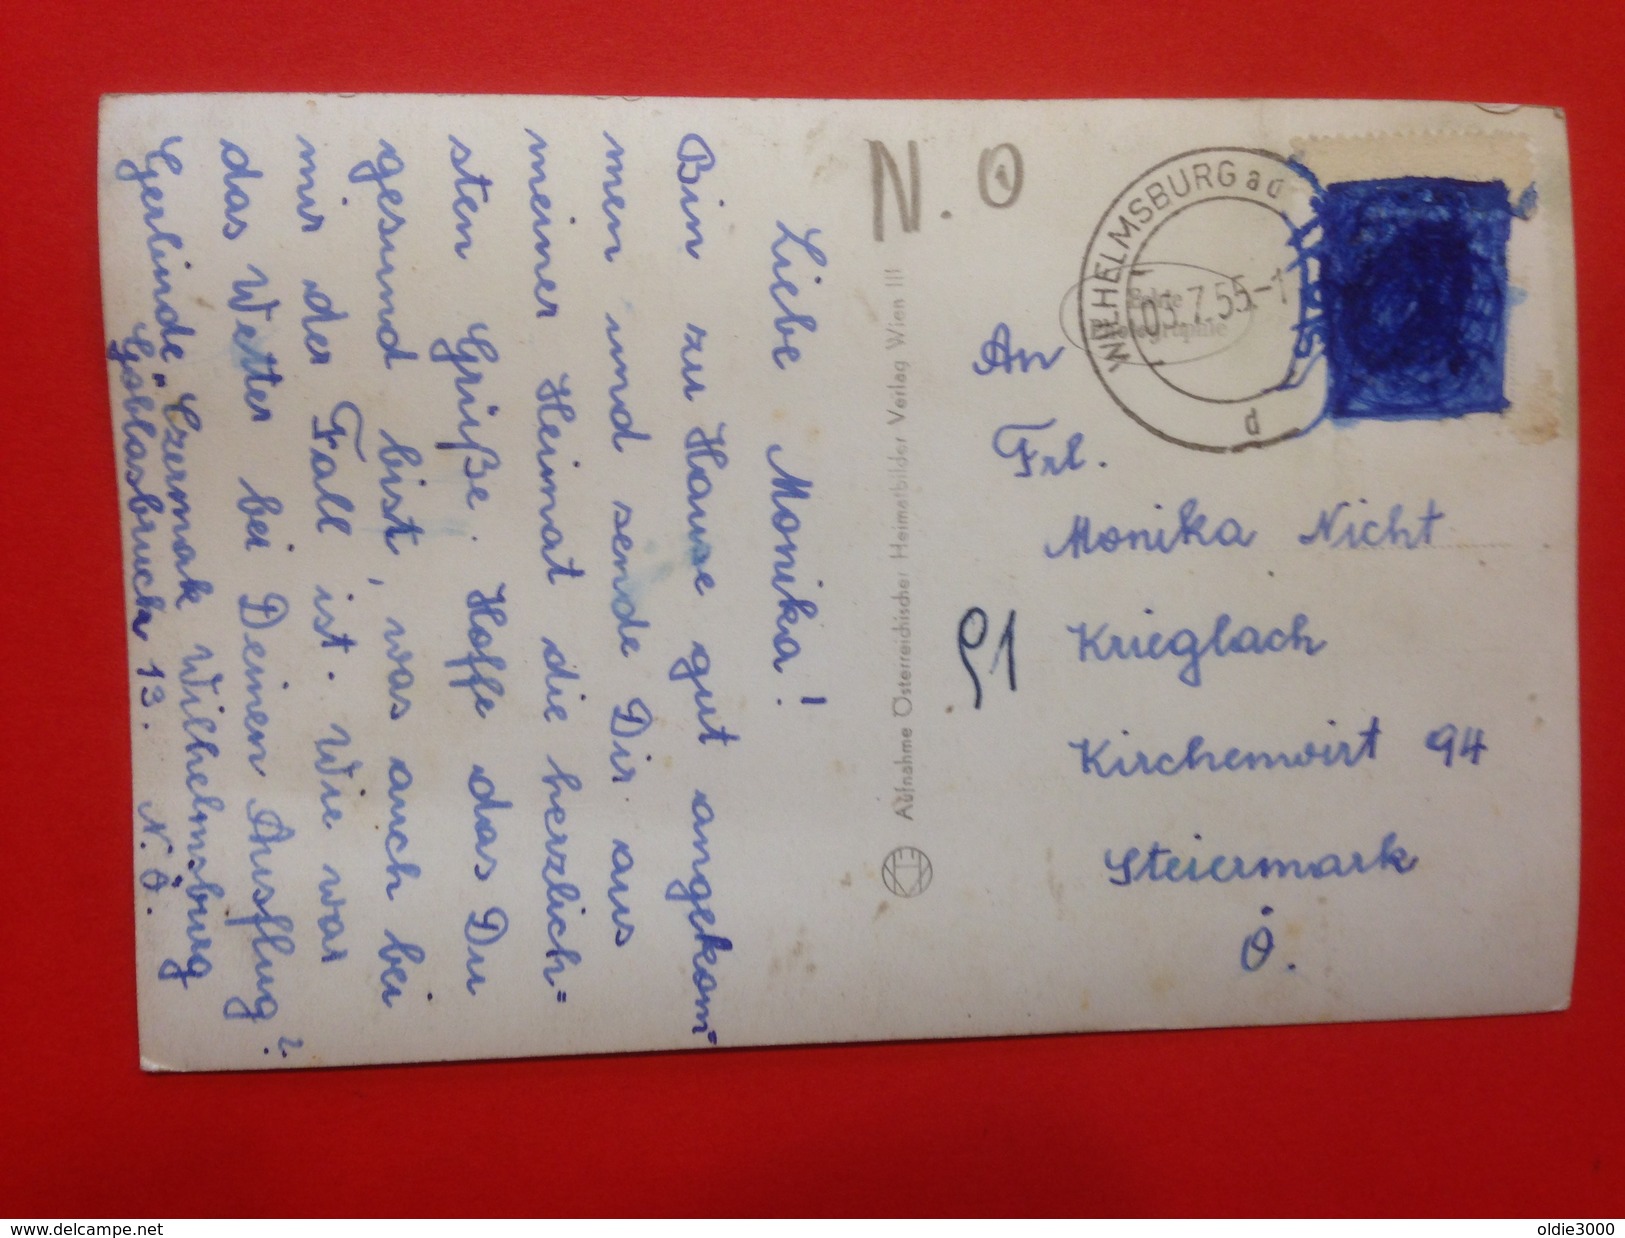 Liebe Monika!
Bin zu Hause gut angekom=
men und sende Dir aus
meiner Heimat die herzlich=
sten Grüße. Hoffe das Du
gesund bist, was auch bei
mir der Fall ist. Wie war
das Wetter bei Deinen Ausflug?
Gerlinde Czermak Wilhelmsburg
Göblasbruch 13. N.Ö.
N.O
WILHELMSBURG ad
7.55-1
d
Echte
Photographie
Aufnahme Österreichischer Heimatbilder Verlag Wien III
An
Frl.
Monika Nicht
Krieglach
Kirchenwirt 94
Steiermark
Ö.
91
www.delcampe.net
oldie3000